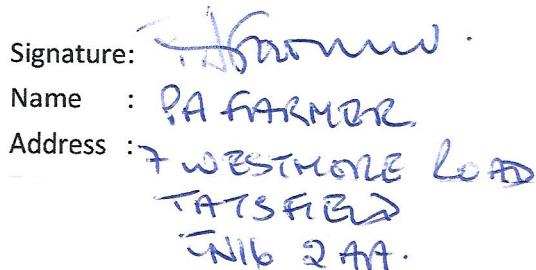 Signature: P.A Farmer.
Name : P.A FARMER.
Address : 7 WESTMORE ROAD
TATSFIELD
TN16 2AA.